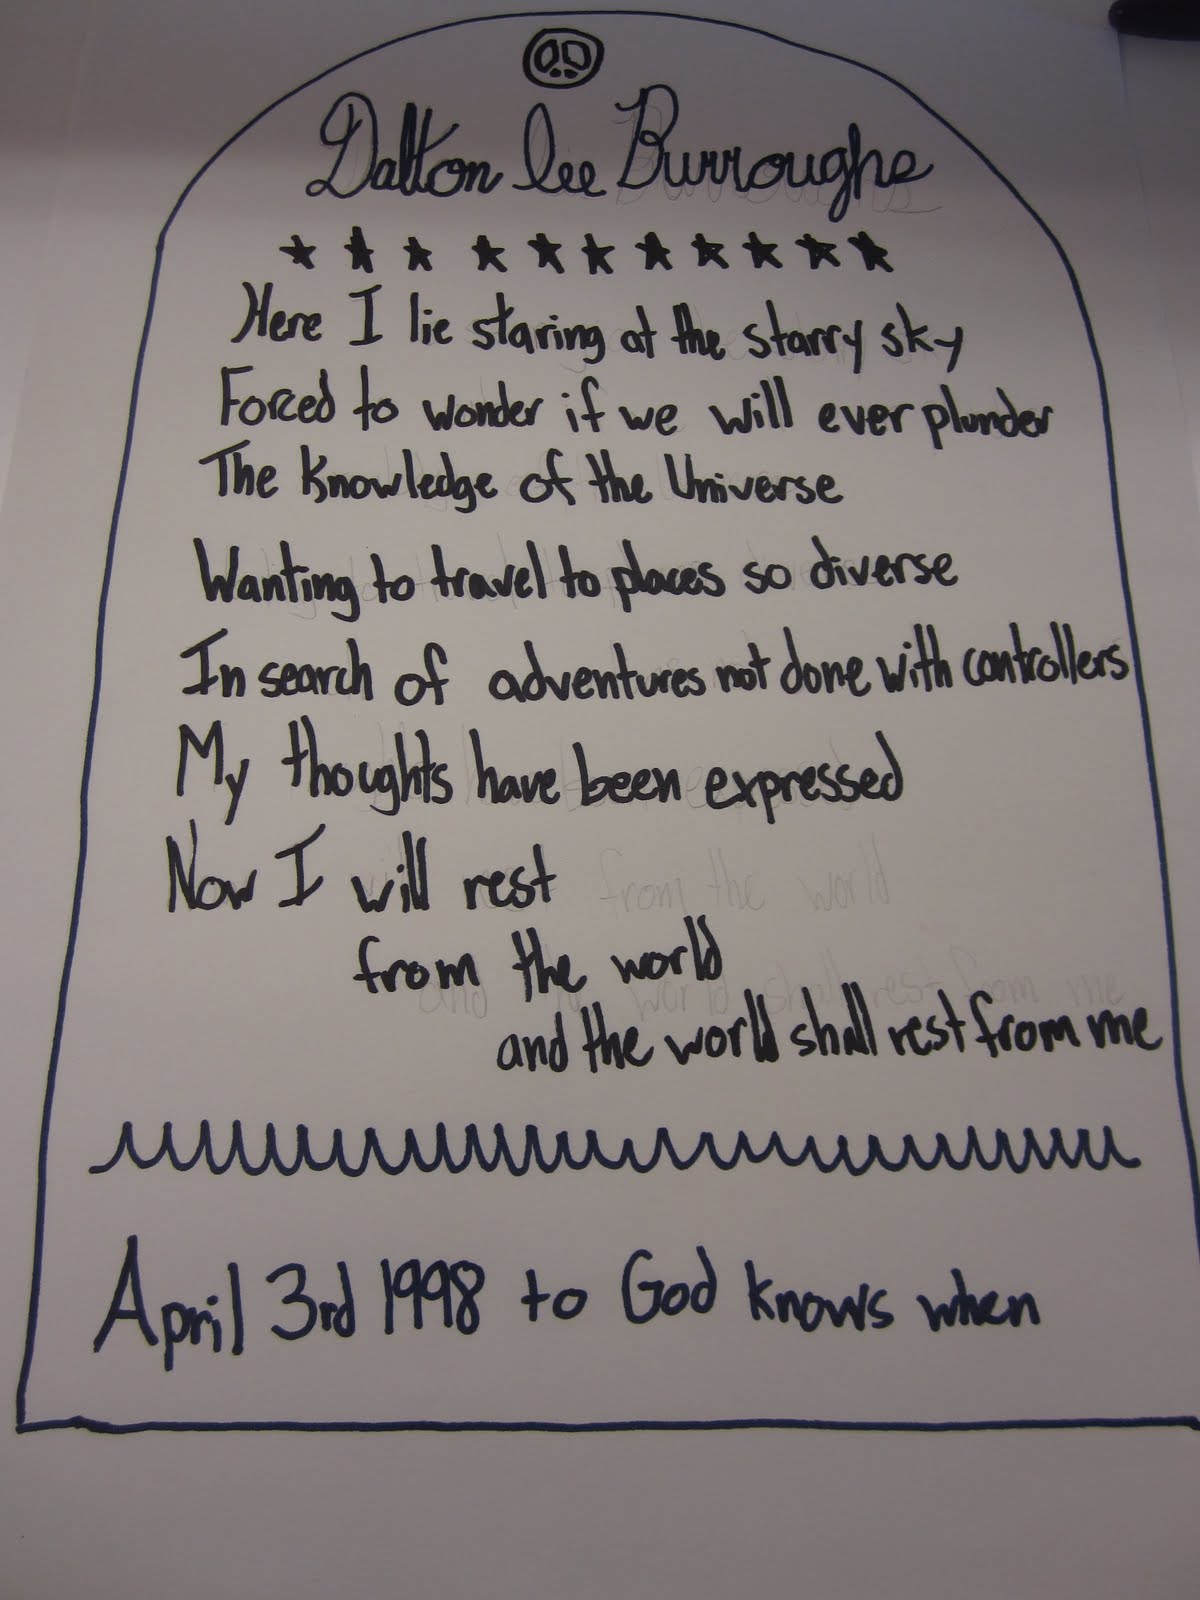 Dalton lee Burroughs
Here I lie staring at the starry sky
Forced to wonder if we will ever plunder
The Knowledge of the Universe
Wanting to travel to places so diverse
In search of adventures not done with controllers
My thoughts have been expressed
Now I will rest
from the world
and the world shall rest from me
April 3rd 1998 to God knows when